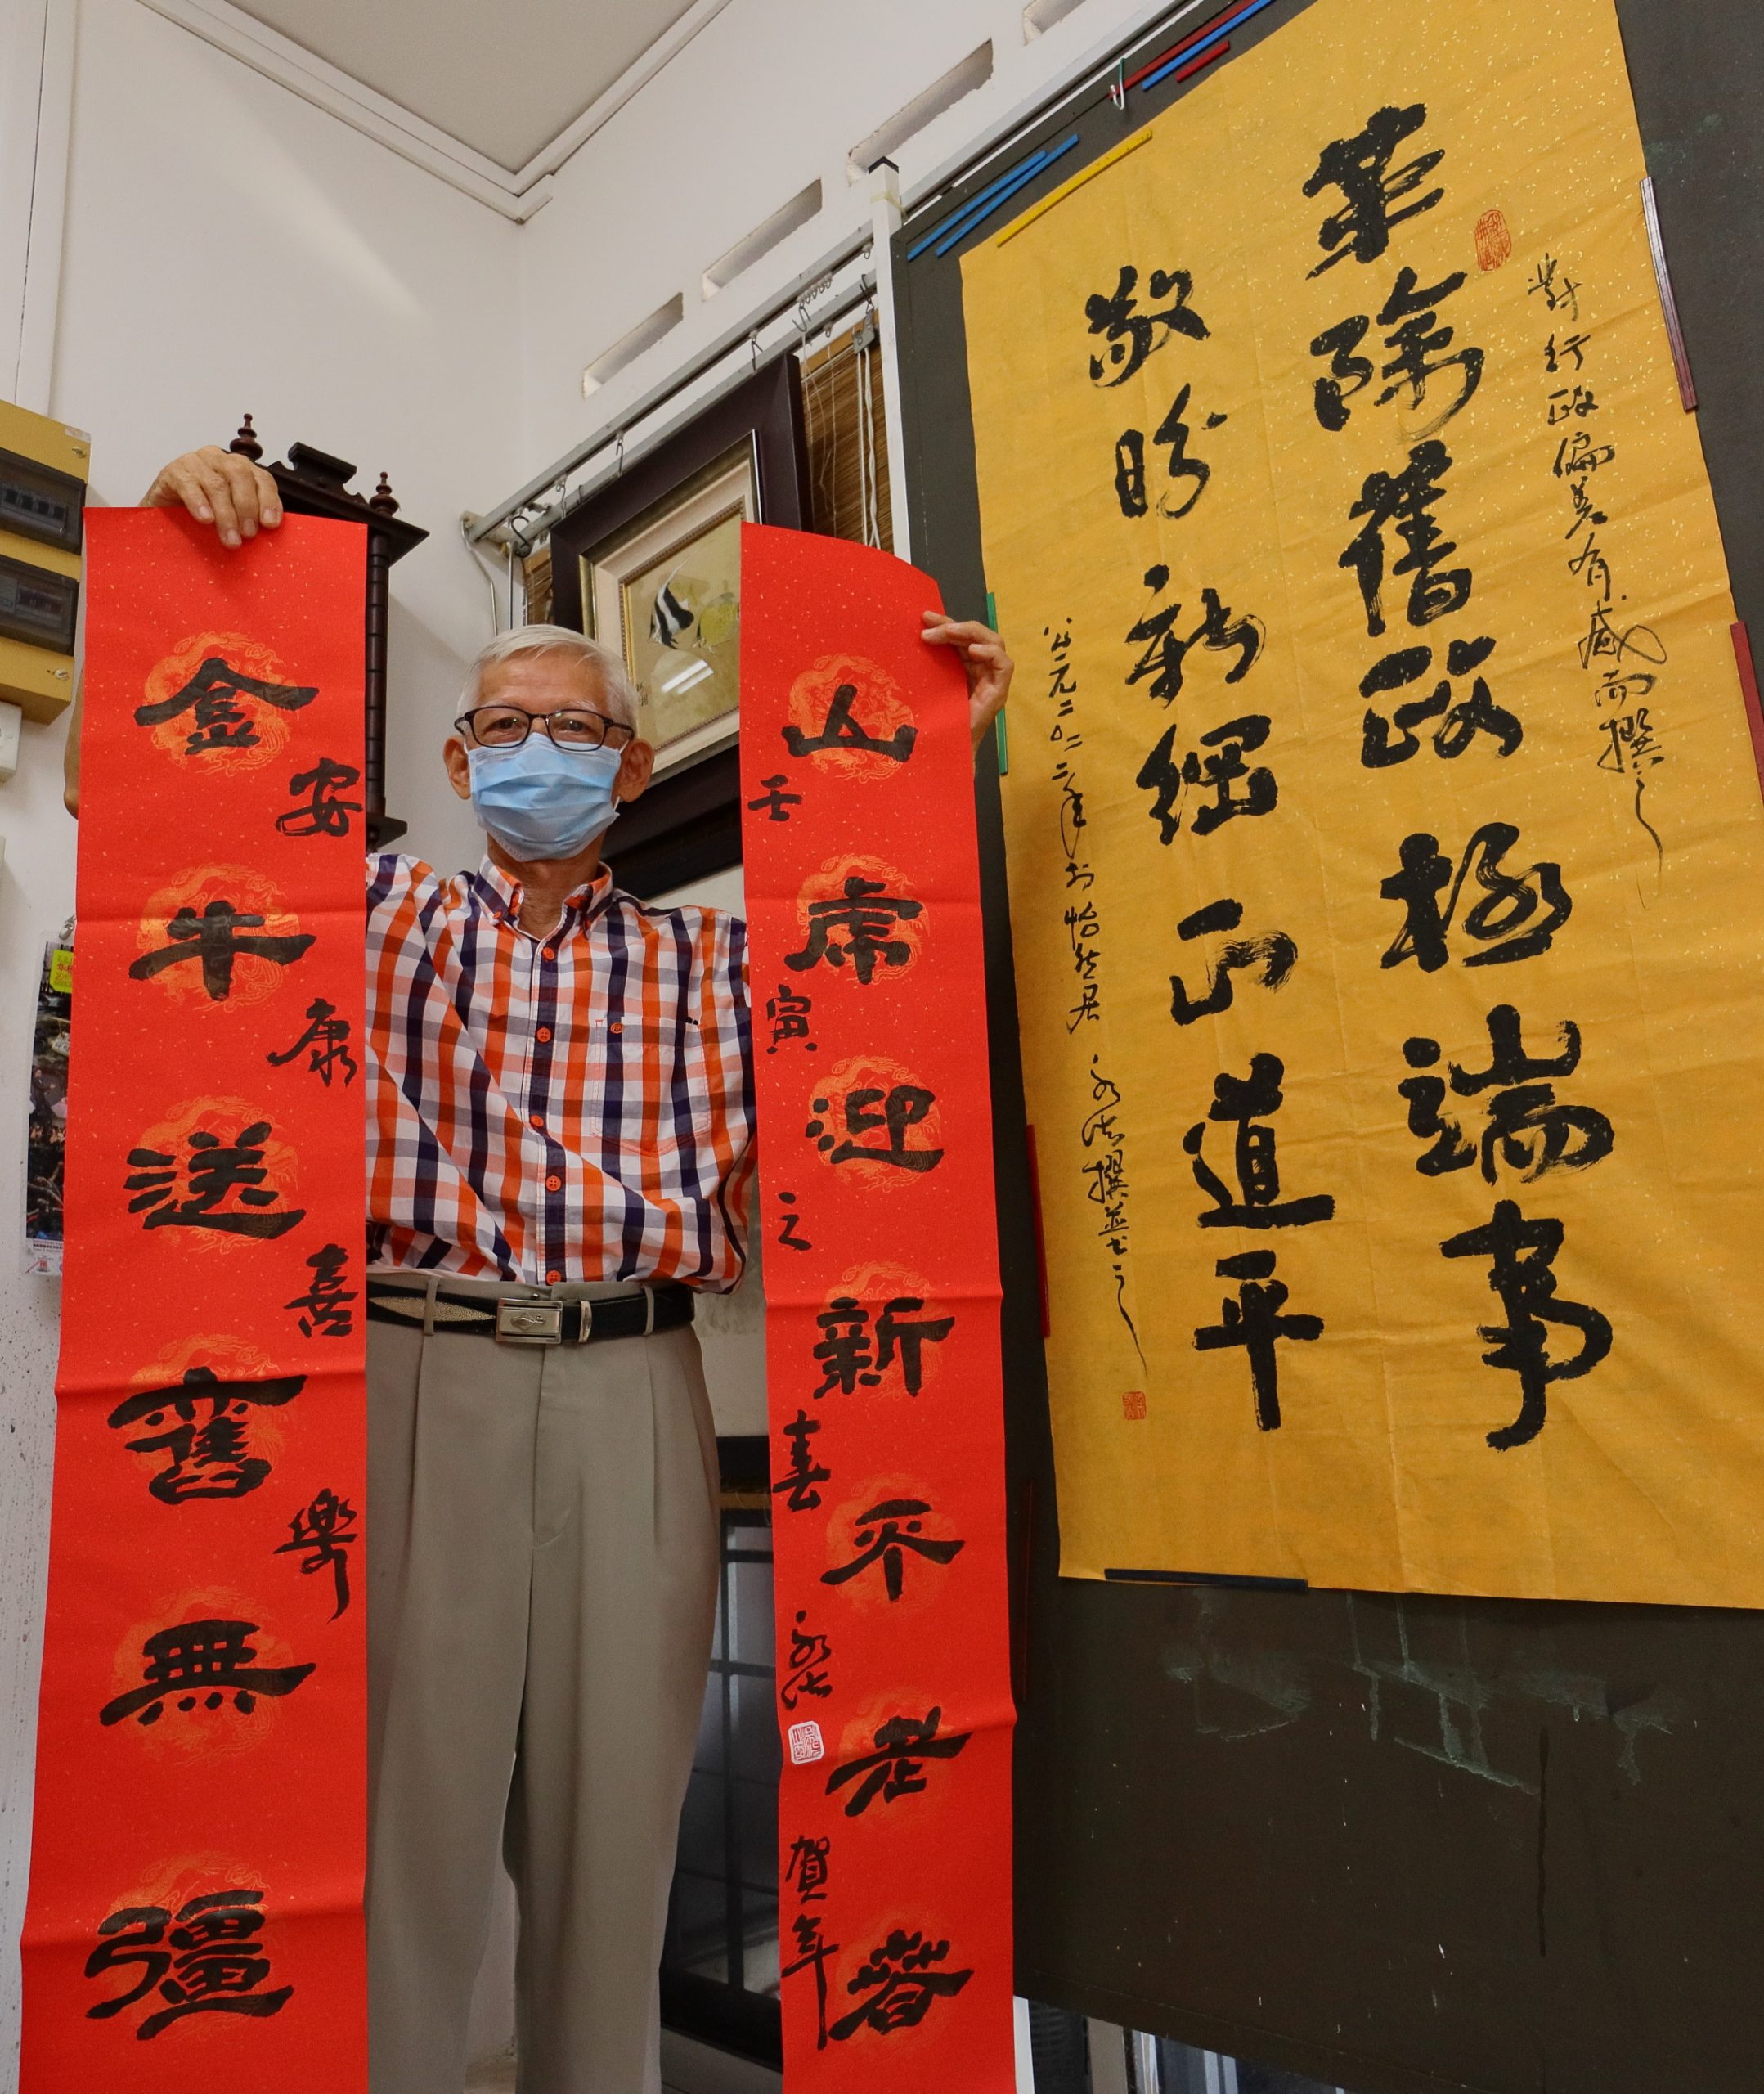 對行政偏差有感而撰之
革除舊政極端事
敬盼新綱正道平
公元二〇二二年於怡然居 永 撰並書之
山虎迎新不老春
壬寅之春 永 賀年
安康喜樂
金牛送舊無疆